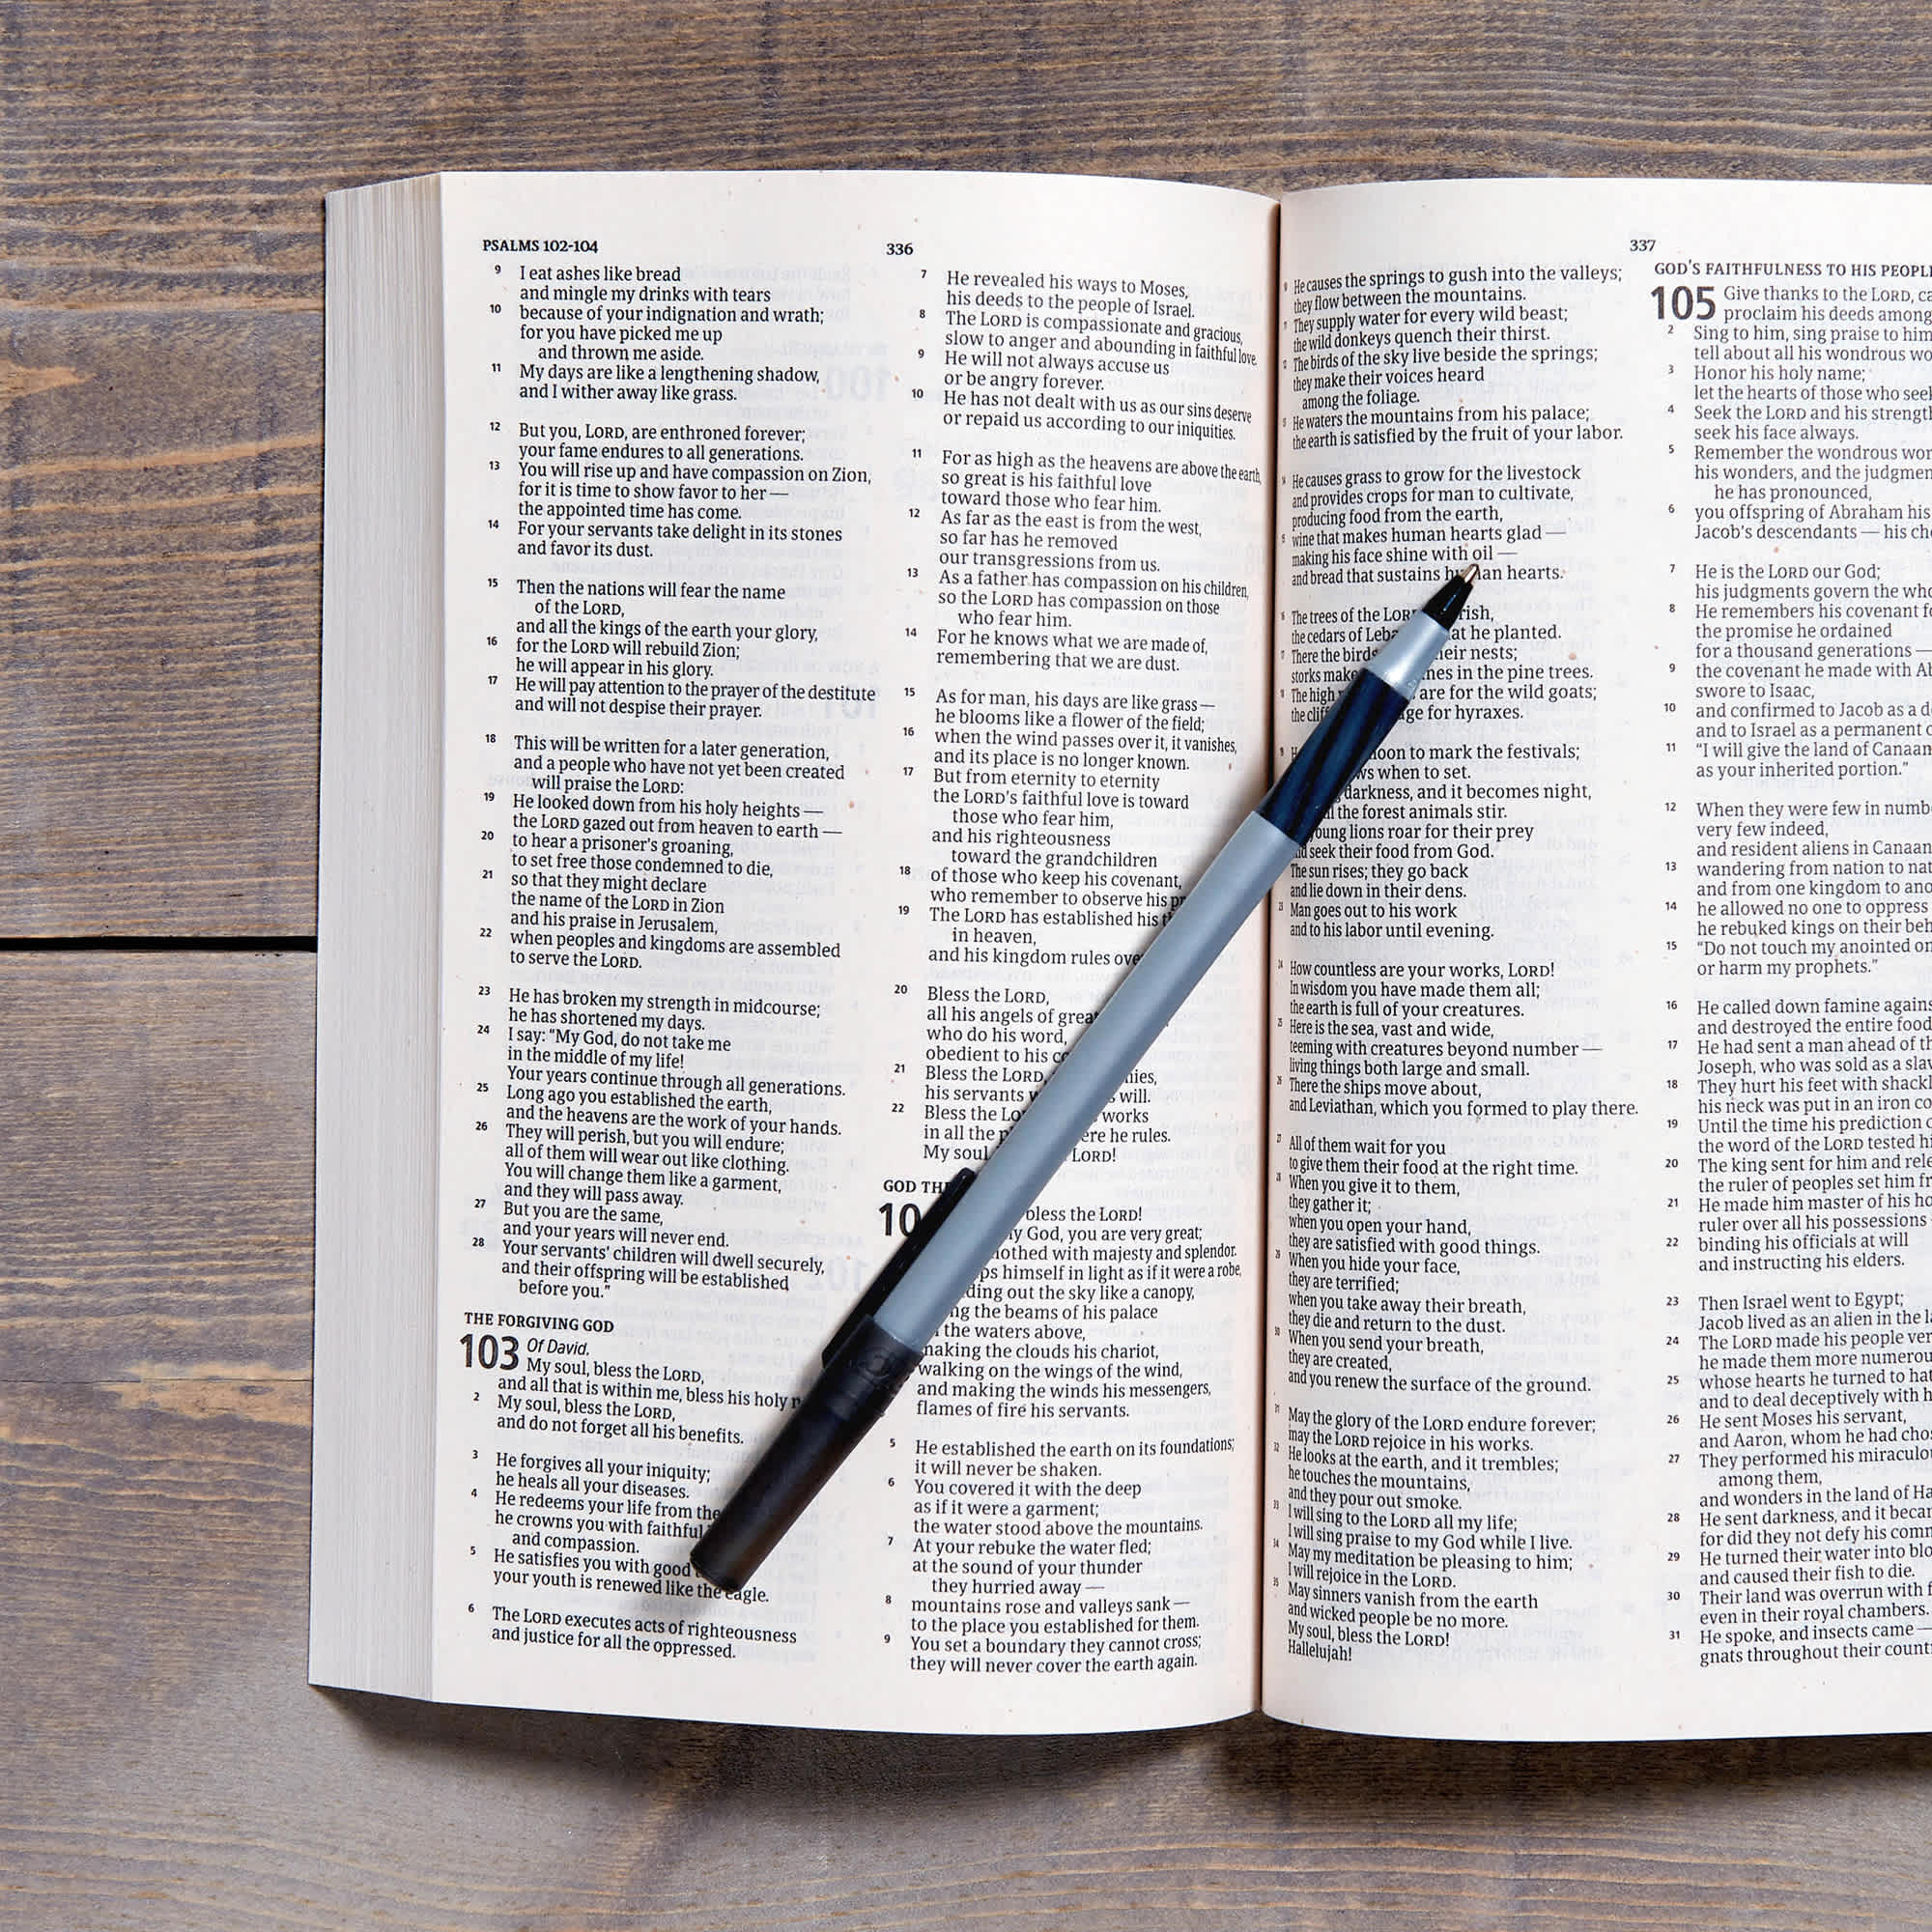 PSALMS 102-104
336
9 I eat ashes like bread
and mingle my drinks with tears
10 because of your indignation and wrath;
for you have picked me up
and thrown me aside.
11 My days are like a lengthening shadow,
and I wither away like grass.
12 But you, LORD, are enthroned forever;
your fame endures to all generations.
13 You will rise up and have compassion on Zion,
for it is time to show favor to her —
the appointed time has come.
14 For your servants take delight in its stones
and favor its dust.
15 Then the nations will fear the name
of the LORD,
and all the kings of the earth your glory,
16 for the LORD will rebuild Zion;
he will appear in his glory.
17 He will pay attention to the prayer of the destitute
and will not despise their prayer.
18 This will be written for a later generation,
and a people who have not yet been created
will praise the LORD:
19 He looked down from his holy heights —
the LORD gazed out from heaven to earth —
20 to hear a prisoner's groaning,
to set free those condemned to die,
21 so that they might declare
the name of the LORD in Zion
and his praise in Jerusalem,
22 when peoples and kingdoms are assembled
to serve the LORD.
23 He has broken my strength in midcourse;
he has shortened my days.
24 I say: "My God, do not take me
in the middle of my life!
Your years continue through all generations.
25 Long ago you established the earth,
and the heavens are the work of your hands.
26 They will perish, but you will endure;
all of them will wear out like clothing.
You will change them like a garment,
and they will pass away.
27 But you are the same,
and your years will never end.
28 Your servants' children will dwell securely,
and their offspring will be established
before you."
THE FORGIVING GOD
103 Of David.
My soul, bless the LORD,
and all that is within me, bless his holy
2 My soul, bless the LORD,
and do not forget all his benefits.
3 He forgives all your iniquity;
he heals all your diseases.
4 He redeems your life from the
he crowns you with faithful
and compassion.
5 He satisfies you with good
your youth is renewed like the eagle.
6 The LORD executes acts of righteousness
and justice for all the oppressed.
7 He revealed his ways to Moses,
his deeds to the people of Israel.
8 The LORD is compassionate and gracious,
slow to anger and abounding in faithful love.
9 He will not always accuse us
or be angry forever.
10 He has not dealt with us as our sins deserve
or repaid us according to our iniquities.
11 For as high as the heavens are above the earth,
so great is his faithful love
toward those who fear him.
12 As far as the east is from the west,
so far has he removed
our transgressions from us.
13 As a father has compassion on his children,
so the LORD has compassion on those
who fear him.
14 For he knows what we are made of,
remembering that we are dust.
15 As for man, his days are like grass —
he blooms like a flower of the field;
16 when the wind passes over it, it vanishes,
and its place is no longer known.
17 But from eternity to eternity
the LORD's faithful love is toward
those who fear him,
and his righteousness
toward the grandchildren
18 of those who keep his covenant,
who remember to observe his
19 The LORD has established his
in heaven,
and his kingdom rules
20 Bless the LORD,
all his angels of
who do his word,
obedient to his
21 Bless the LORD,
his servants will.
22 Bless the works
in all the he rules.
My soul, LORD!
GOD
bless the LORD!
God, you are very great;
with majesty and splendor.
himself in light as if it were a robe,
out the sky like a canopy,
the beams of his palace
the waters above,
making the clouds his chariot,
walking on the wings of the wind,
and making the winds his messengers,
flames of fire his servants.
5 He established the earth on its foundations;
it will never be shaken.
6 You covered it with the deep
as if it were a garment;
the water stood above the mountains.
7 At your rebuke the water fled;
at the sound of your thunder
they hurried away —
8 mountains rose and valleys sank —
to the place you established for them.
9 You set a boundary they cannot cross;
they will never cover the earth again.
337
He causes the springs to gush into the valleys;
they flow between the mountains.
They supply water for every wild beast;
the wild donkeys quench their thirst.
The birds of the sky live beside the springs;
they make their voices heard
among the foliage.
He waters the mountains from his palace;
the earth is satisfied by the fruit of your labor.
He causes grass to grow for the livestock
and provides crops for man to cultivate,
producing food from the earth,
wine that makes human hearts glad —
making his face shine with oil —
and bread that sustains human hearts.
The trees of the
the cedars of he planted.
There the birds their nests;
storks make in the pine trees.
The high are for the wild goats;
the for hyraxes.
to mark the festivals;
when to set.
darkness, and it becomes night,
the forest animals stir.
young lions roar for their prey
and seek their food from God.
The sun rises; they go back
and lie down in their dens.
23 Man goes out to his work
and to his labor until evening.
How countless are your works, LORD!
In wisdom you have made them all;
the earth is full of your creatures.
Here is the sea, vast and wide,
teeming with creatures beyond number —
living things both large and small.
There the ships move about,
and Leviathan, which you formed to play there.
All of them wait for you
to give them their food at the right time.
When you give it to them,
they gather it;
when you open your hand,
they are satisfied with good things.
When you hide your face,
they are terrified;
when you take away their breath,
they die and return to the dust.
When you send your breath,
they are created,
and you renew the surface of the ground.
May the glory of the LORD endure forever;
may the LORD rejoice in his works.
He looks at the earth, and it trembles;
he touches the mountains,
and they pour out smoke.
I will sing to the LORD all my life;
I will sing praise to my God while I live.
May my meditation be pleasing to him;
I will rejoice in the LORD.
May sinners vanish from the earth
and wicked people be no more.
My soul, bless the LORD!
Hallelujah!
GOD'S FAITHFULNESS TO HIS
105 Give thanks to the LORD,
proclaim his deeds among
2 Sing to him, sing praise to him
tell about all his wondrous
3 Honor his holy name;
let the hearts of those who
4 Seek the LORD and his
seek his face always.
5 Remember the wondrous
his wonders, and the
he has pronounced,
6 you offspring of Abraham his
Jacob's descendants — his
7 He is the LORD our God;
his judgments govern the
8 He remembers his covenant
the promise he ordained
for a thousand generations —
9 the covenant he made with
swore to Isaac,
10 and confirmed to Jacob as a
and to Israel as a permanent
11 "I will give the land of Canaan
as your inherited portion."
12 When they were few in
very few indeed,
and resident aliens in Canaan
13 wandering from nation to
and from one kingdom to
14 he allowed no one to oppress
he rebuked kings on their
15 "Do not touch my anointed
or harm my prophets."
16 He called down famine
and destroyed the entire food
17 He had sent a man ahead of
Joseph, who was sold as a
18 They hurt his feet with
his neck was put in an iron
19 Until the time his prediction
the word of the LORD tested
20 The king sent for him and
the ruler of peoples set him
21 He made him master of his
ruler over all his possessions
22 binding his officials at will
and instructing his elders.
23 Then Israel went to Egypt;
Jacob lived as an alien in the
24 The LORD made his people
he made them more
25 whose hearts he turned to
and to deal deceptively with
26 He sent Moses his servant,
and Aaron, whom he had
27 They performed his
among them,
and wonders in the land of
28 He sent darkness, and it
for did they not defy his
29 He turned their water into
and caused their fish to die.
30 Their land was overrun with
even in their royal chambers.
31 He spoke, and insects came —
gnats throughout their